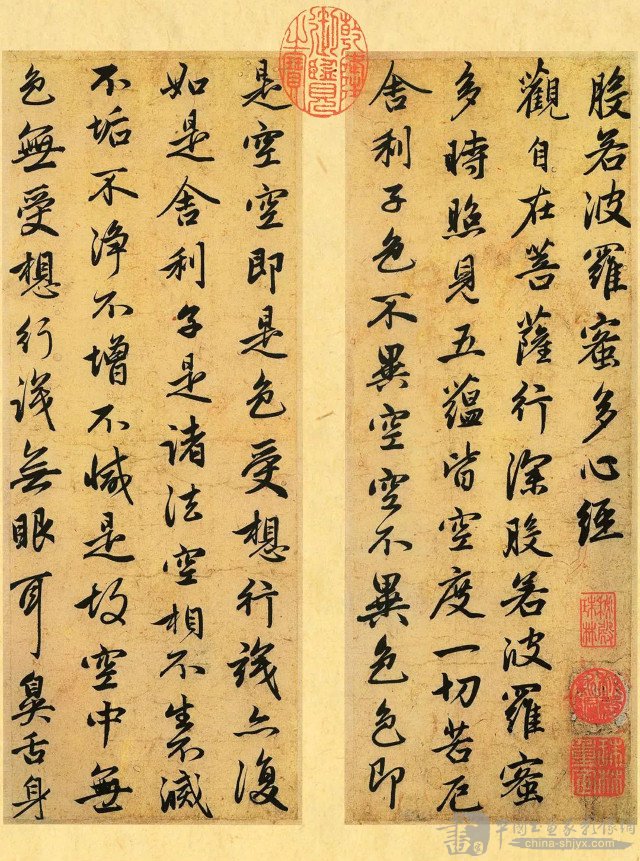 般若波羅蜜多心經
觀自在菩薩行深般若波羅蜜
多時照見五蘊皆空度一切苦厄
舍利子色不異空空不異色色即
是空空即是色受想行識亦復
如是舍利子是諸法空相不生不滅
不垢不淨不增不減是故空中無
色無受想行識無眼耳鼻舌身
乾隆御覽之寶
秘殿珠林
china-shjyx.com